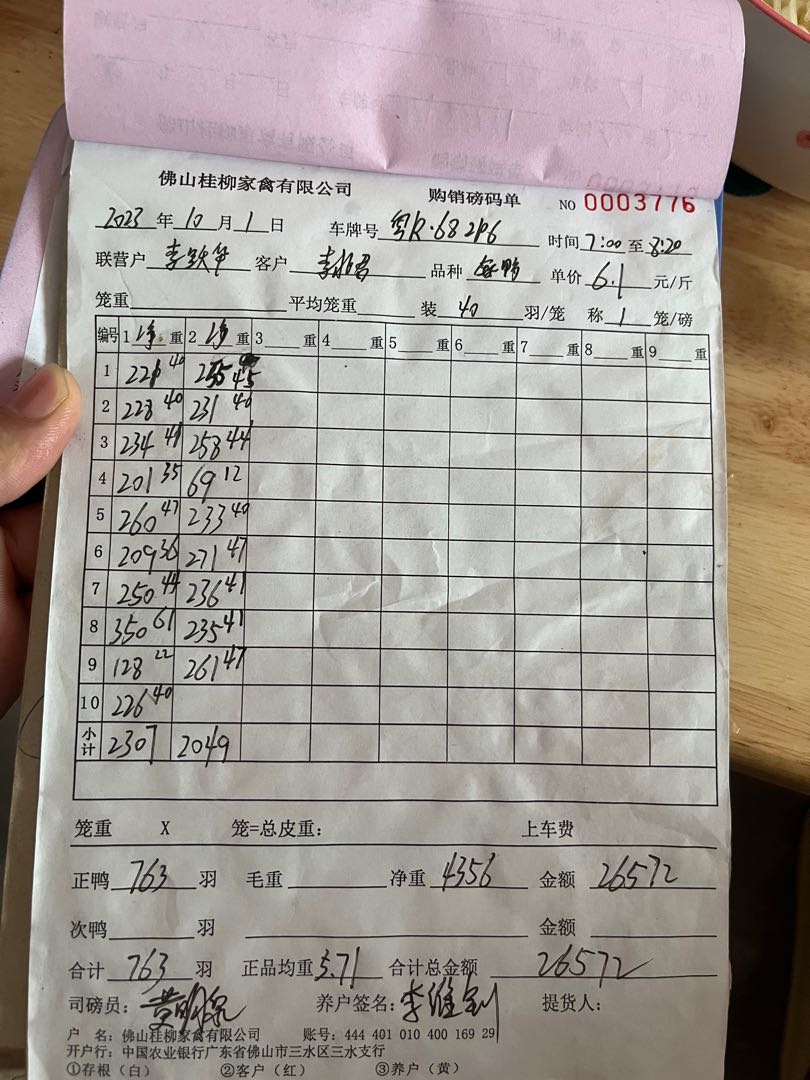 佛山桂柳家禽有限公司 购销磅码单 NO 0003776
2023 年 10 月 1 日 车牌号 粤R·682P6 时间 7:00 至 8:20
联营户 客户 品种 单价 6.1 元/斤
笼重 平均笼重 装 40 羽/笼 称 1 笼/磅
编号 1 净 重 2 净 重 3 重 4 重 5 重 6 重 7 重 8 重 9 重
1 221 40 255 45
2 228 40 231 40
3 234 41 258 44
4 201 35 69 12
5 260 47 233 40
6 209 36 271 47
7 250 44 236 41
8 350 61 235 41
9 128 22 261 47
10 226 40
小计 2307 2049
笼重 X 笼=总皮重: 上车费
正鸭 763 羽 毛重 净重 4356 金额 26572
次鸭 羽 金额
合计 763 羽 正品均重 5.71 合计总金额 26572
司磅员: 养户签名: 提货人:
户 名: 佛山桂柳家禽有限公司 账号: 444 401 010 400 169 29
开户行: 中国农业银行广东省佛山市三水区三水支行
①存根(白) ②客户(红) ③养户(黄)